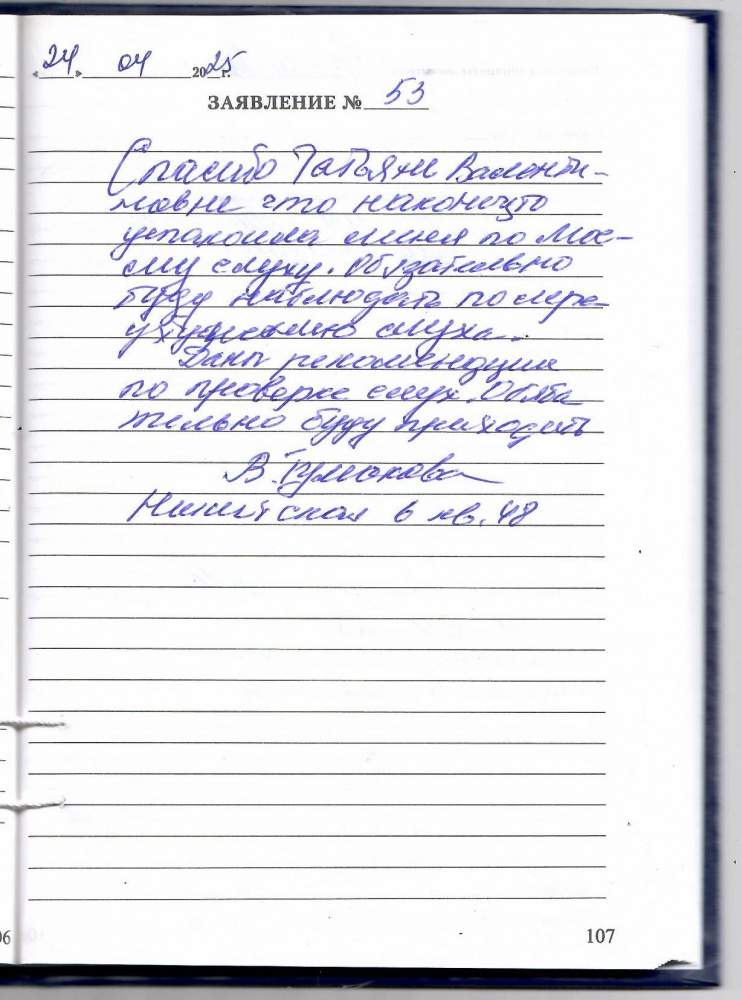 «24» 04 2025 г.
ЗАЯВЛЕНИЕ № 53
Спасибо Татьяне Валенти-
новне что наконецто
успакоила меня по мое-
му слуху. Обязательно
буду наблюдать по мере
ухудшению слуха..
Даны рекомендации
по проверке слух. Обяза
тельно буду приходить
В.
6 кв. 48
06
107